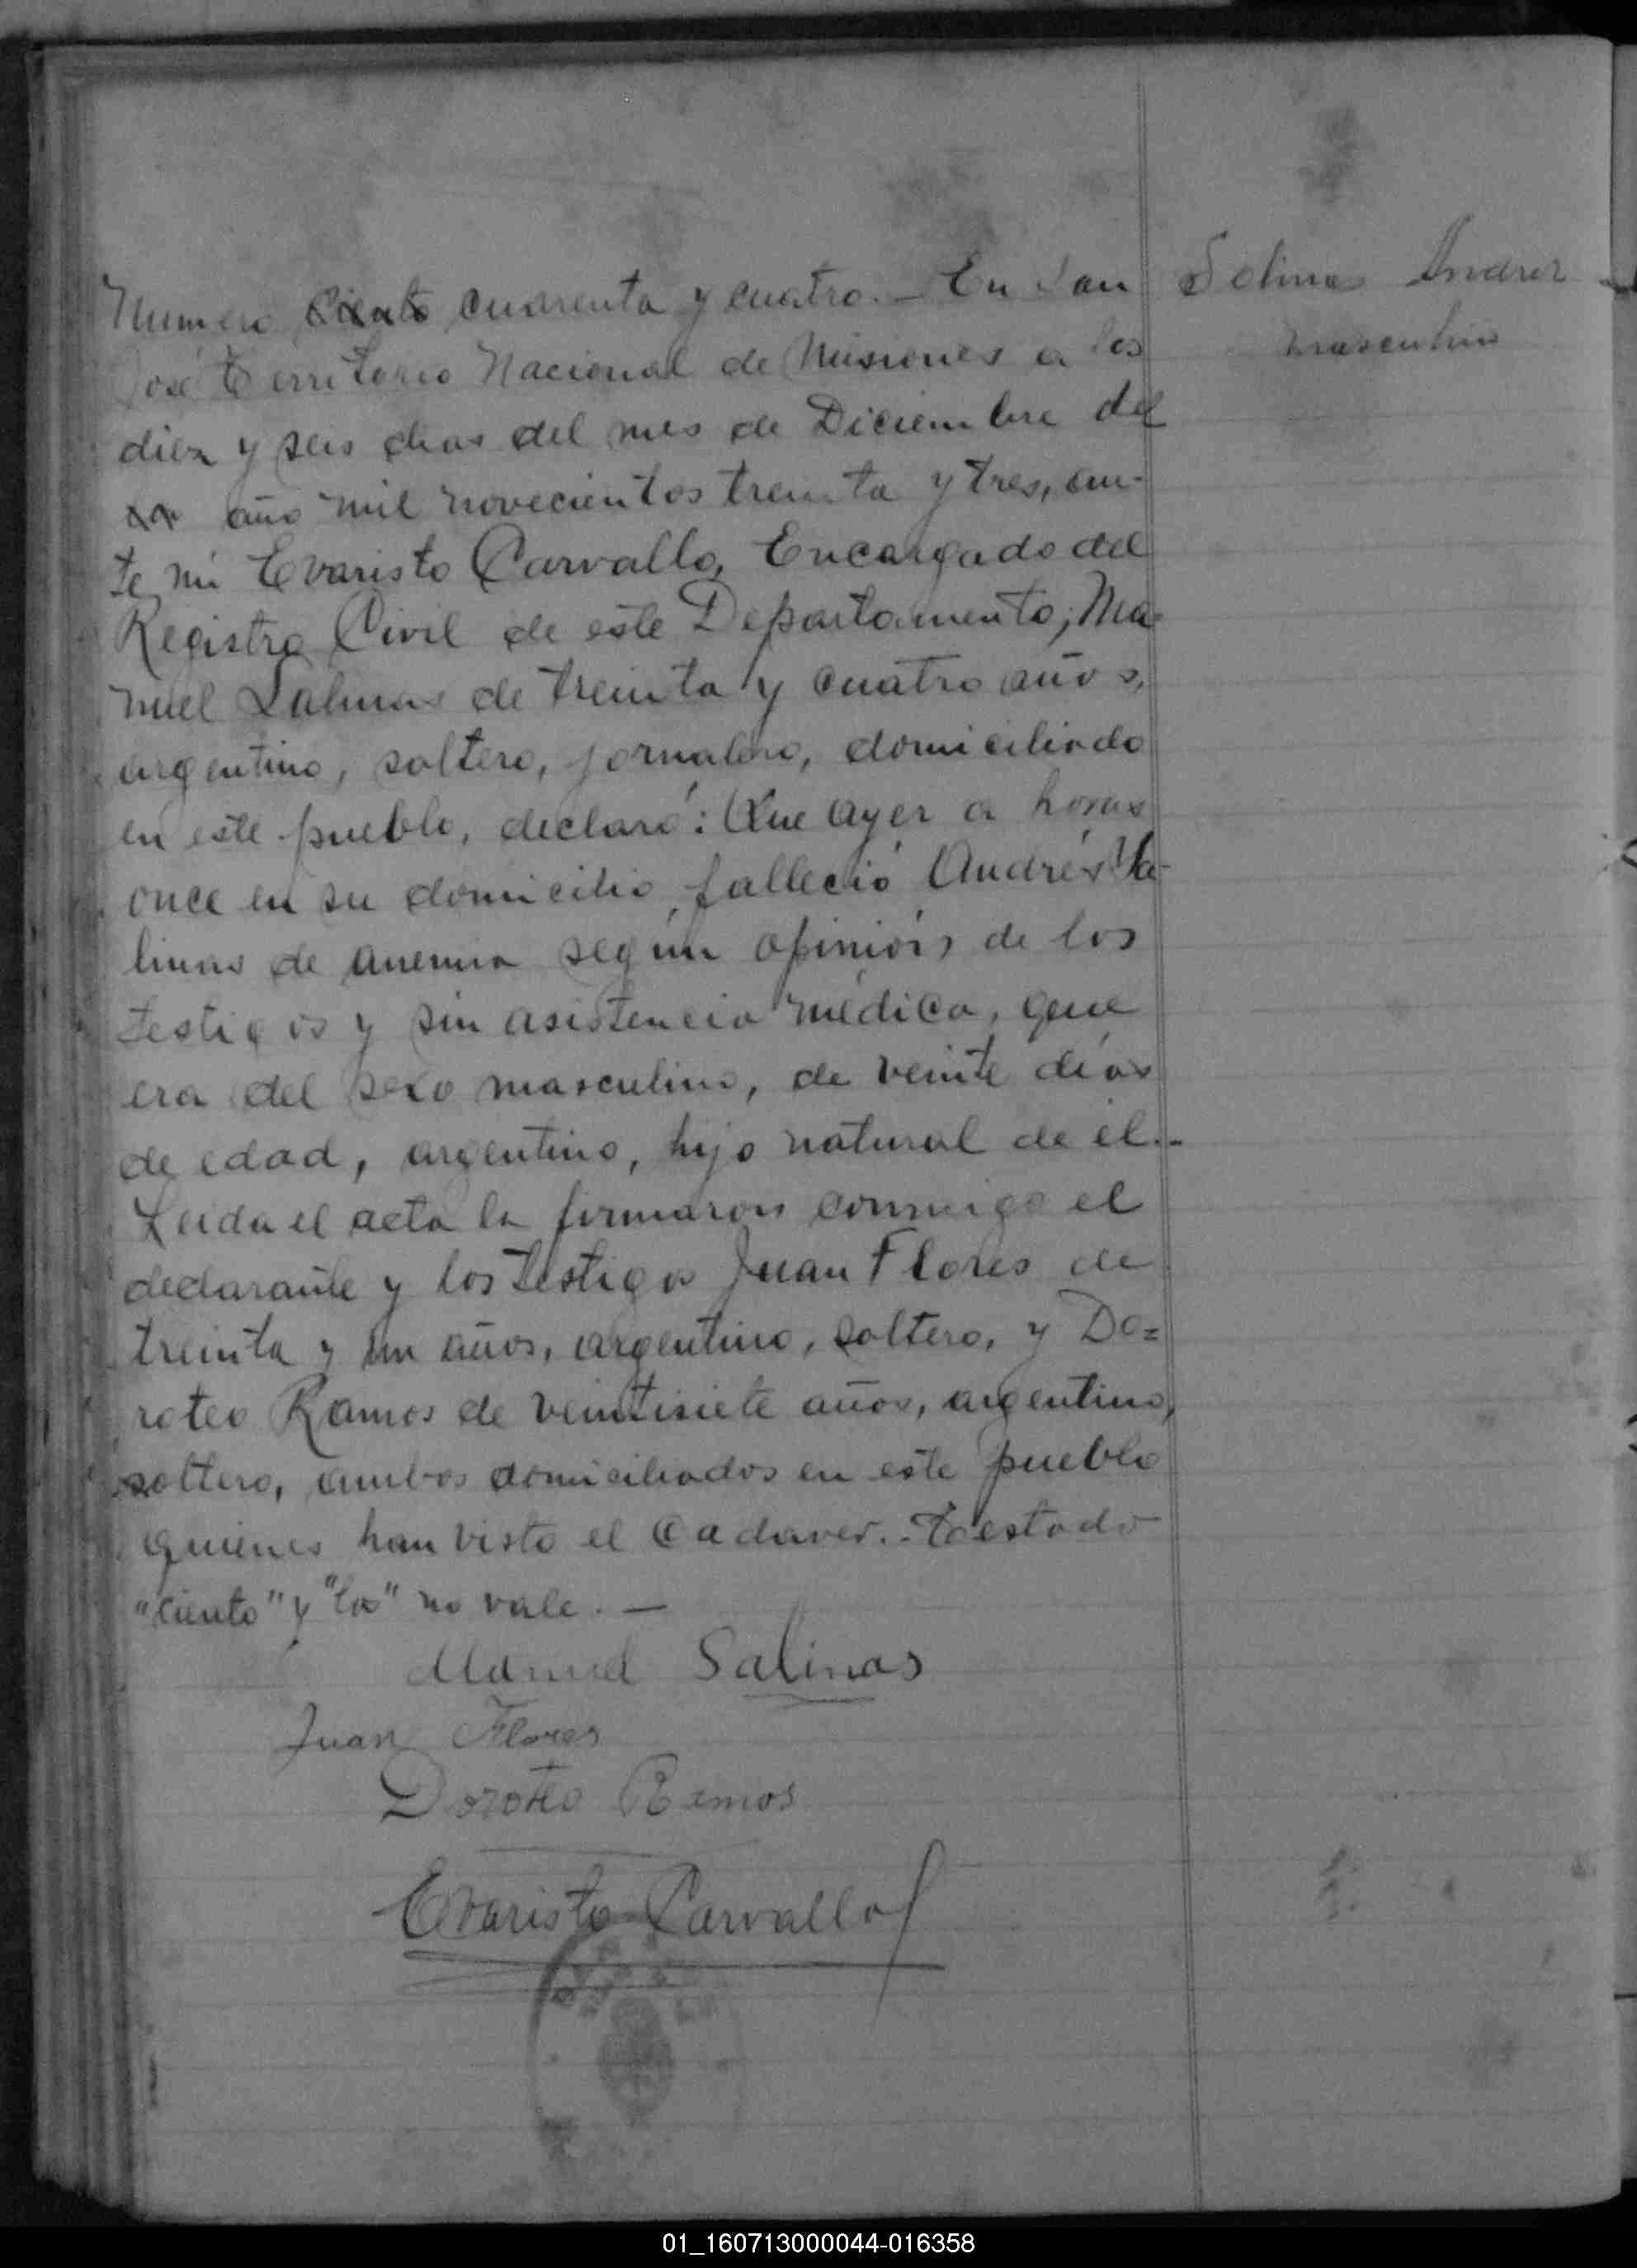 Numero ciento cuarenta y cuatro.- En San
José Territorio Nacional de Misiones a los
diez y seis dias del mes de Diciembre del
año mil novecientos treinta y tres, an-
te mi Evaristo Carvallo, Encargado del
Registro Civil de este Departamento; Ma-
nuel Salinas de treinta y cuatro años,
argentino, soltero, jornalero, domiciliado
en este pueblo, declaró: Que ayer a horas
once en su domicilio falleció Andrés Sa-
linas de anemia según opinión de los
testigos y sin asistencia médica, que
era del sexo masculino, de veinte días
de edad, argentino, hijo natural de él.-
Leida el acta la firmaron conmigo el
declarante y los testigos Juan Flores de
treinta y un años, argentino, soltero, y Do=
roteo Ramos de veintisiete años, argentino,
soltero, ambos domiciliados en este pueblo
quienes han visto el cadaver.- Testado
"ciento" y "la" no vale. —
Manuel Salinas
Juan Flores
Doroteo Ramos
Evaristo Carvallo
Salinas Andres
masculino
01_160713000044-016358